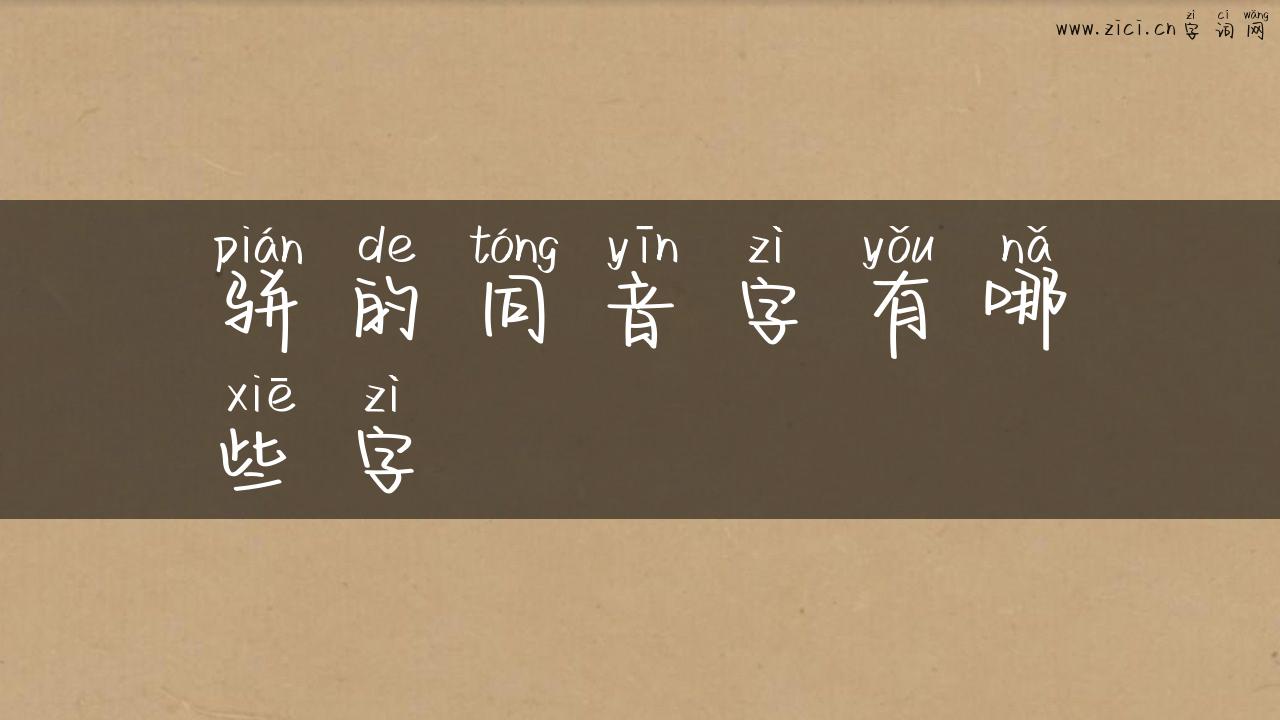 zì cí wǎng
www.zici.cn 字 词 网
pián de tóng yīn zì yǒu nǎ
骈 的 同 音 字 有 哪
xiē zì
些 字